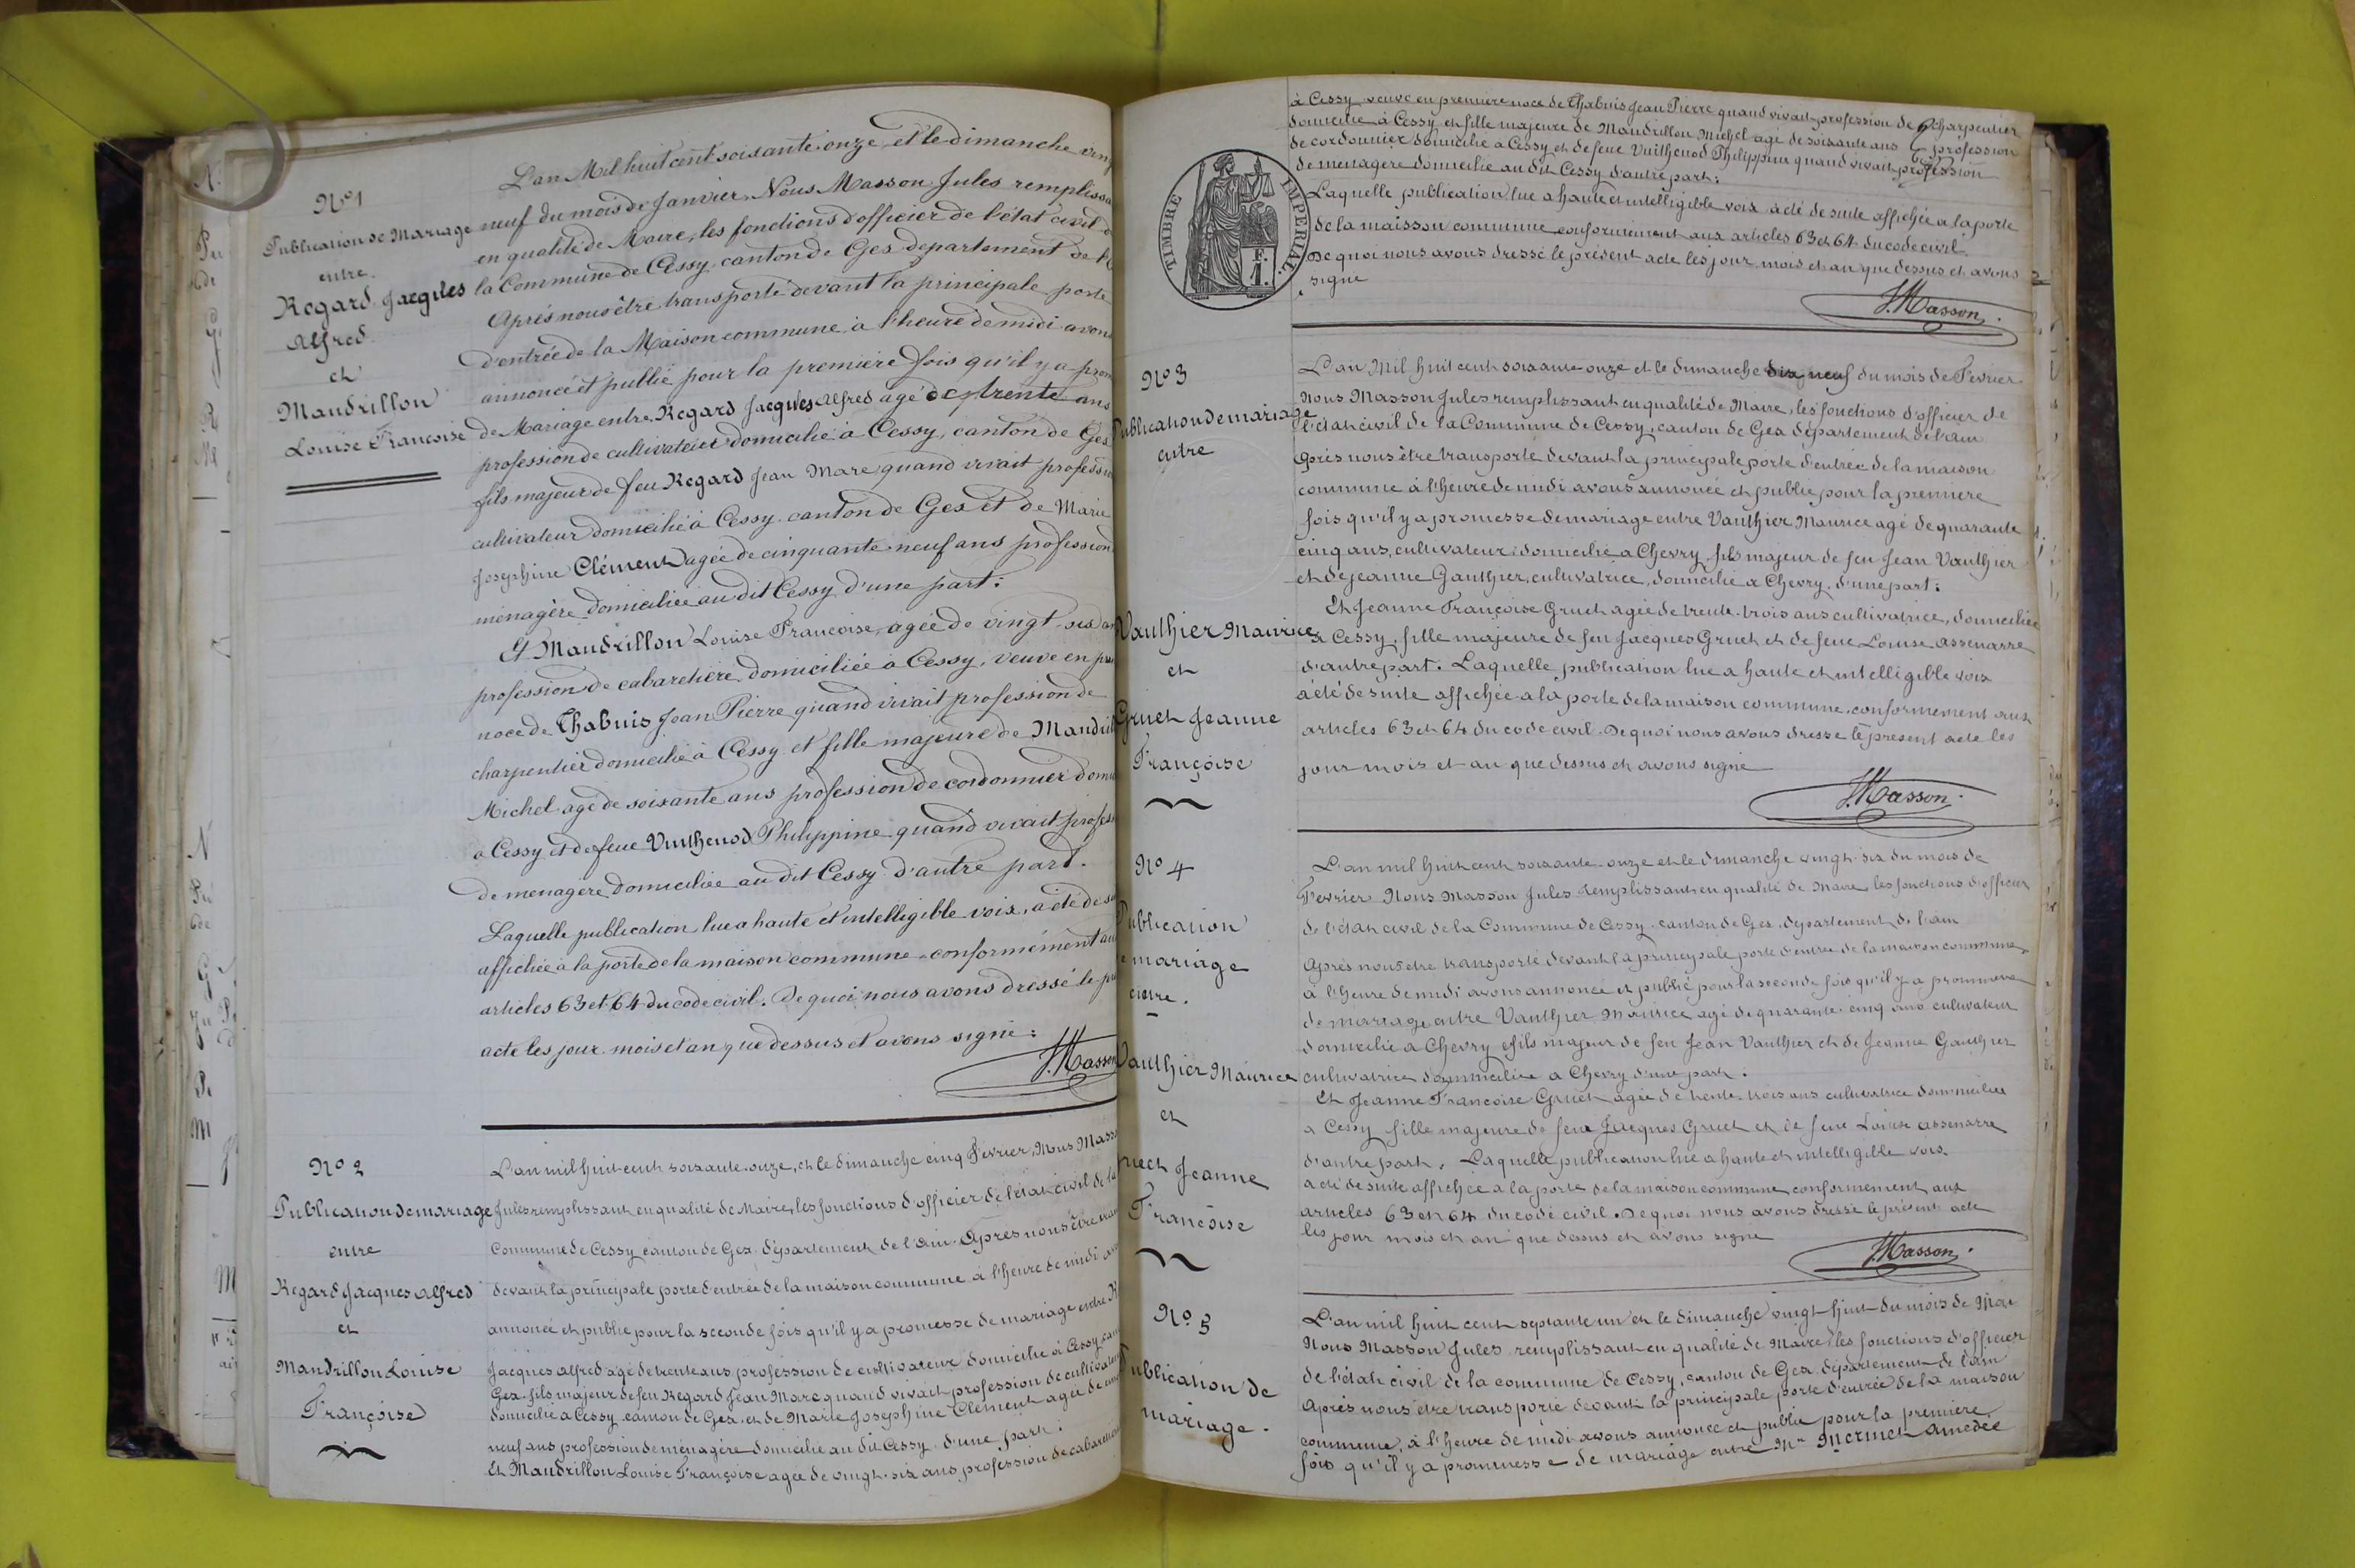 Nº 1
Publication de Mariage
entre
Regard Jacques
Alfred
et
Mandrillon
Louise Francoise
L'an Mil huit cent soixante onze, et le dimanche ving
neuf du mois de Janvier Nous Masson Jules remplissa
en qualité de Maire, les fonctions d'officier de l'état civil d
la Commune de Cessy canton de Gex departement de l'
Après nous être transporté devant la principale porte
d'entrée de la Maison commune à l'heure de midi avon
annoncé et publié pour la première fois qu'il y a prom
de Mariage entre Regard Jacques Alfred agé de trente ans
profession de cultivateur domicilié à Cessy, canton de Gex
fils majeur de feu Regard Jean Marc quand vivait professio
cultivateur domicilié à Cessy canton de Gex et de Marie
Josephine Clément agée de cinquante neuf ans profession
ménagère domiciliée au dit Cessy d'une part :
Et Mandrillon Louise Francoise, agée de vingt-six an
profession de cabaretière domiciliée à Cessy, veuve en pre
noce de Chabuis Jean Pierre quand vivait profession de
charpentier domicilié à Cessy et fille majeure de Mandril
Michel agé de soixante ans profession de cordonnier domi
à Cessy et de feue Vuithenod Philippine quand vivait profess
de menagère domiciliée au dit Cessy d'autre part.
Laquelle publication lue a haute et intelligible voix, a été de su
affichée à la porte de la maison commune conformément au
articles 63 et 64 du code civil. De quoi nous avons dressé le pr
acte les jour mois et an que dessus et avons signé :
J. Masson
Nº 2
Publication de mariage
entre
Regard Jacques Alfred
et
Mandrillon Louise
Françoise
L'an mil huit cent soixante onze, et le dimanche cinq Fevrier, Nous Mass
Jules remplissant en qualité de Maire, les fonctions d'officier de l'état civil de la
Commune de Cessy canton de Gex département de l'Ain. Après nous être tran
devant la principale porte d'entrée de la maison commune à l'heure de midi av
annoncé et publié pour la seconde fois qu'il y a promesse de mariage entre R
Jacques Alfred agé de trente ans profession de cultivateur domicilié à Cessy can
Gex fils majeur de feu Regard Jean Marc quand vivait profession de cultivateur
domicilié a Cessy canton de Gex et de Marie Josephine Clément agée de cinq
neuf ans profession de ménagère domicilié au dit Cessy d'une part :
Et Mandrillon Louise Françoise agée de vingt-six ans profession de cabaretière
TIMBRE IMPERIAL
à Cessy veuve en première noce de Chabuis Jean Pierre quand vivait profession de charpentier
domicilié à Cessy et fille majeure de Mandrillon Michel agé de soixante ans profession
de cordonnier domicilié à Cessy et de feue Vuithenod Philippine quand vivait profession
de menagère domicilié au dit Cessy d'autre part :
Laquelle publication lue a haute et intelligible voix a été de suite affichée a la porte
de la maisson commune conformément aux articles 63 et 64 du code civil.
De quoi nous avons dressé le présent acte les jour mois et an que dessus et avons
signé
J. Masson
Nº 3
Publication de mariage
entre
Vauthier Maurice
et
Gruet Jeanne
Françoise
L'an Mil huit cent soixante onze et le dimanche dix neuf du mois de Fevrier
Nous Masson Jules remplissant en qualité de Maire, les fonctions d'officier de
l'état civil de la Commune de Cessy, canton de Gex département de l'ain
après nous être transporté devant la principale porte d'entrée de la maison
commune à l'heure de midi avons annoncé et publié pour la première
fois qu'il y a promesse de mariage entre Vauthier Maurice agé de quarante
cinq ans, cultivateur domicilié a Chevry fils majeur de feu Jean Vauthier
et de Jeanne Gauthier, cultivatrice, domicilié a Chevry, d'une part :
Et Jeanne Françoise Gruet agée de trente-trois ans cultivatrice, domiciliée
a Cessy, fille majeure de feu Jacques Gruet et de feue Louise assenarre
d'autre part. Laquelle publication lue a haute et intelligible voix
a été de suite affichée a la porte de la maison commune conformement aux
articles 63 et 64 du code civil. De quoi nous avons dressé le présent acte les
jour mois et an que dessus et avons signé
J. Masson
Nº 4
Publication
de mariage
entre.
Vauthier Maurice
et
Gruet Jeanne
Françoise
L'an mil huit cent soixante-onze et le dimanche vingt-six du mois de
Fevrier Nous Masson Jules remplissant en qualité de Maire les fonctions d'officier
de l'état civil de la Commune de Cessy canton de Gex département de l'ain
Après nous être transporté devant la principale porte d'entrée de la maison commune,
à l'heure de midi avons annoncé et publié pour la seconde fois qu'il y a prommesse
de marriage entre Vauthier Maurice agé de quarante-cinq ans cultivateur
domicilié a Chevry fils majeur de feu Jean Vauthier et de Jeanne Gauthier
cultivatrice dommiciliée a Chevry d'une part.
Et Jeanne Francoise Gruet agée de trente-trois ans cultivatrice dommiciliée
a Cessy fille majeure de feu Jacques Gruet et de feue Louise assenarre
d'autre part. Laquelle publication lue a haute et intelligible voix
a été de suite affichée a la porte de la maison commune conformement aux
articles 63 et 64 du code civil. De quoi nous avons dressé le présent acte
les jour mois et an que dessus et avons signé
J. Masson
Nº 5
Publication de
mariage.
L'an mil huit cent septante un et le dimanche vingt-huit du mois de Mai
Nous Masson Jules remplissant en qualité de Maire les fonctions d'officier
de l'état civil de la commune de Cessy, canton de Gex département de l'ain
Après nous être transporté devant la principale porte d'entrée de la maison
commune, à l'heure de midi avons annoncé et publié pour la première
fois qu'il y a prommesse de mariage entre Mr Mermet Amédée